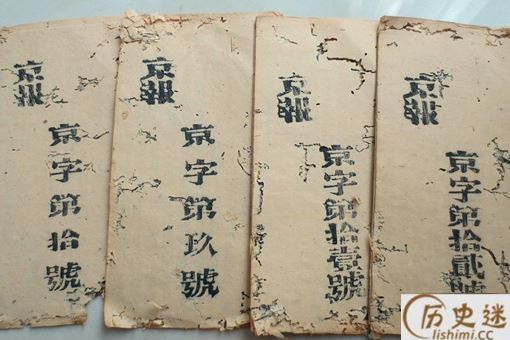 京報
京字第拾號
京報
京字第玖號
京報
京字第拾壹號
京報
京字第拾貳號
历史迷
lishimi.cc